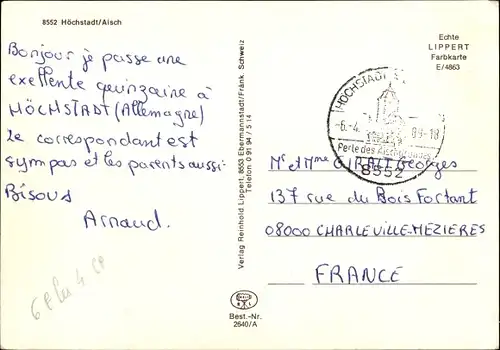 8552 Höchstadt/Aisch
Bonjour je passe une
exellente quinzaine à
HÖCHSTADT (Allemagne)
Le correspondant est
sympas et les parents aussi.
Bisous
Arnaud.
Verlag Reinhold Lippert, 8553 Ebermannstadt/Fränk. Schweiz
Telefon 0 91 94 / 5 14
Best.-Nr.
2640/A
Echte
LIPPERT
Farbkarte
E/4863
HÖCHSTADT
-6.-4. 18
Perle des Aischgrundes
8552
Mr et Mme GIRAIT Georges
137 rue du Bois Fortant
08000 CHARLEVILLE-MEZIERES
FRANCE